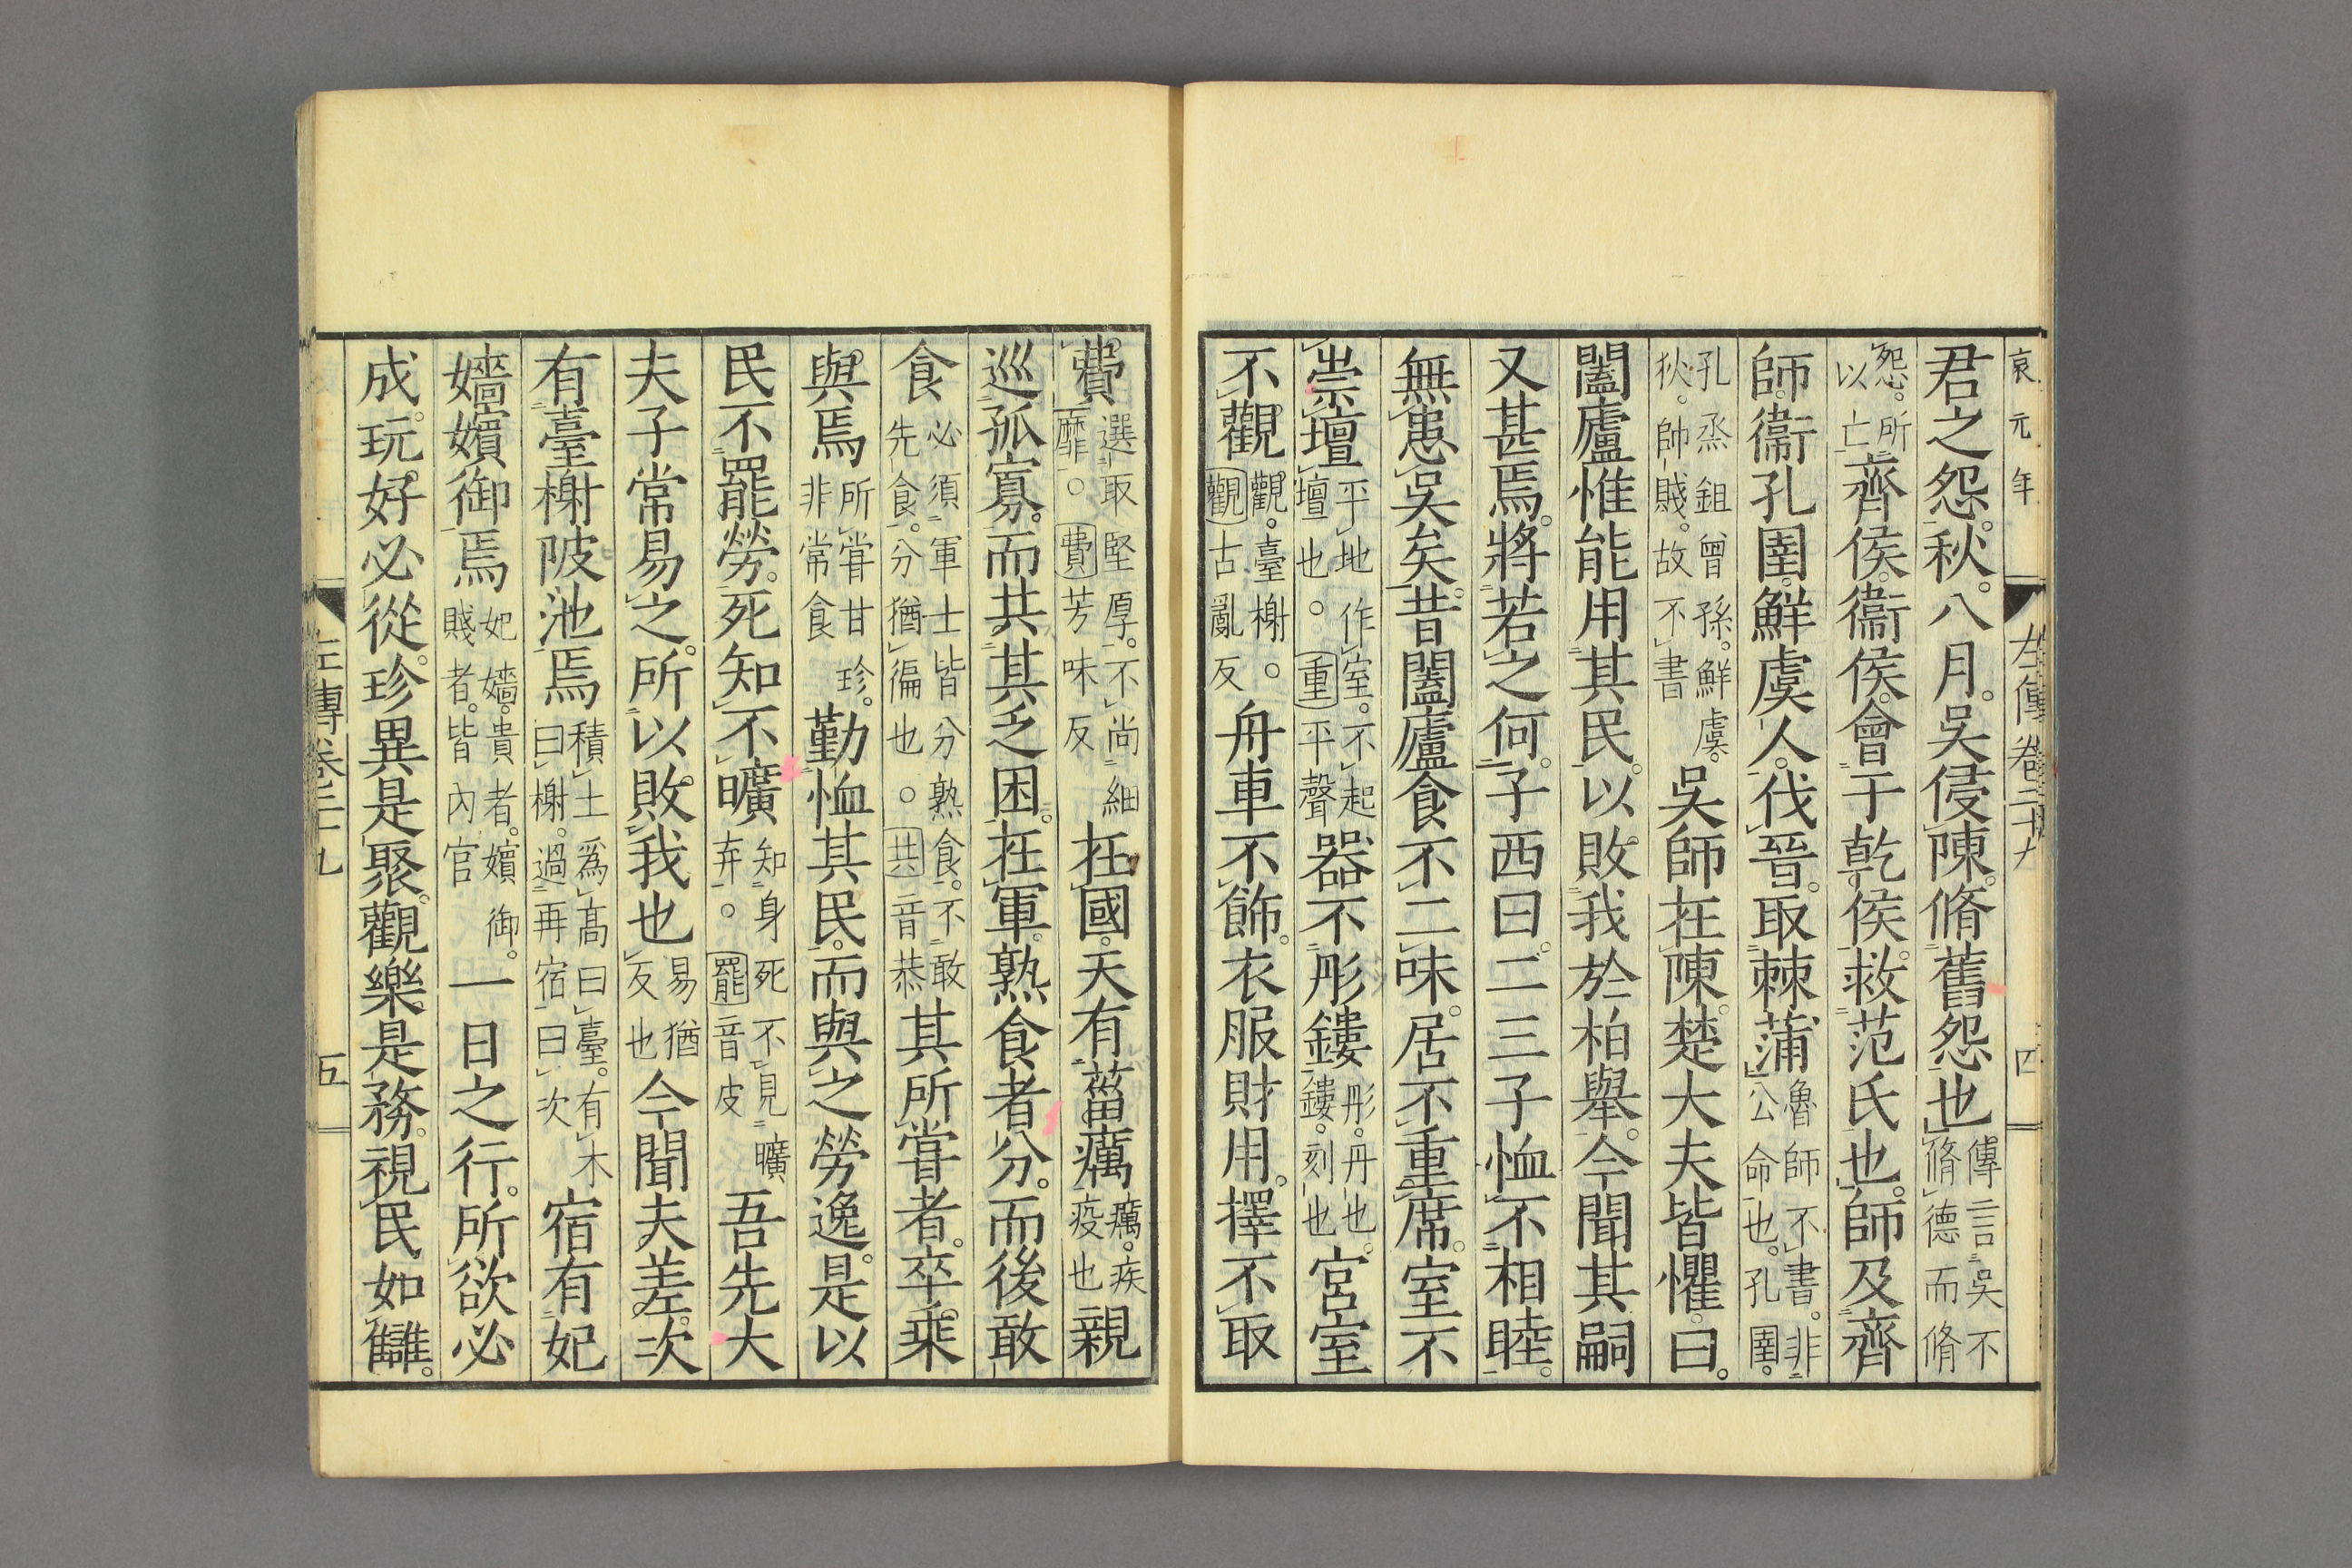 哀元年
左傳卷二十九
四
君之怨秋八月吳侵陳脩舊怨也傳言吳不脩德而脩
怨所以亡齊侯衞侯會于乾侯救范氏也師及齊
師衞孔圉鮮虞人伐晉取棘蒲魯師不書非公命也孔圉
孔烝鉏曾孫鮮虞狄帥賤故不書吳師在陳楚大夫皆懼曰
闔廬惟能用其民以敗我於柏舉今聞其嗣
又甚焉將若之何子西曰二三子恤不相睦
無患吳矣昔闔廬食不二味居不重席室不
崇壇平地作室不起壇也○重平聲器不彤鏤彤丹也鏤刻也宮室
不觀觀臺榭○觀古亂反舟車不飾衣服財用擇不取
費選取堅厚不尚細靡○費芳味反在國天有菑癘癘疾疫也親
巡孤寡而共其乏困在軍熟食者分而後敢
食必須軍士皆分熟食不敢先食分猶徧也○共音恭其所嘗者卒乘
與焉所嘗甘珍非常食勤恤其民而與之勞逸是以
民不罷勞死知不曠知身死不見曠弃○罷音皮吾先大
夫子常易之所以敗我也易猶反也今聞夫差次
有臺榭陂池焉積土爲高曰臺有木曰榭過再宿曰次宿有妃
嬙嬪御焉妃嬙貴者嬪御賤者皆內官一日之行所欲必
成玩好必從珍異是聚觀樂是務視民如讎
左傳卷三十九
五